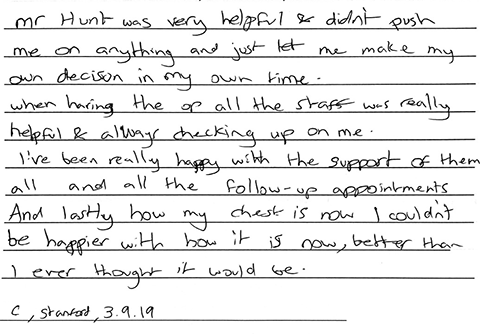 mr Hunt was very helpful & didn't push
me on anything and just let me make my
own decison in my own time.
when having the op all the staff was really
helpful & always checking up on me.
I've been really happy with the support of them
all and all the follow-up appointments
And lastly how my chest is now I couldn't
be happier with how it is now, better than
I ever thought it would be.
C, Stanford, 3.9.19